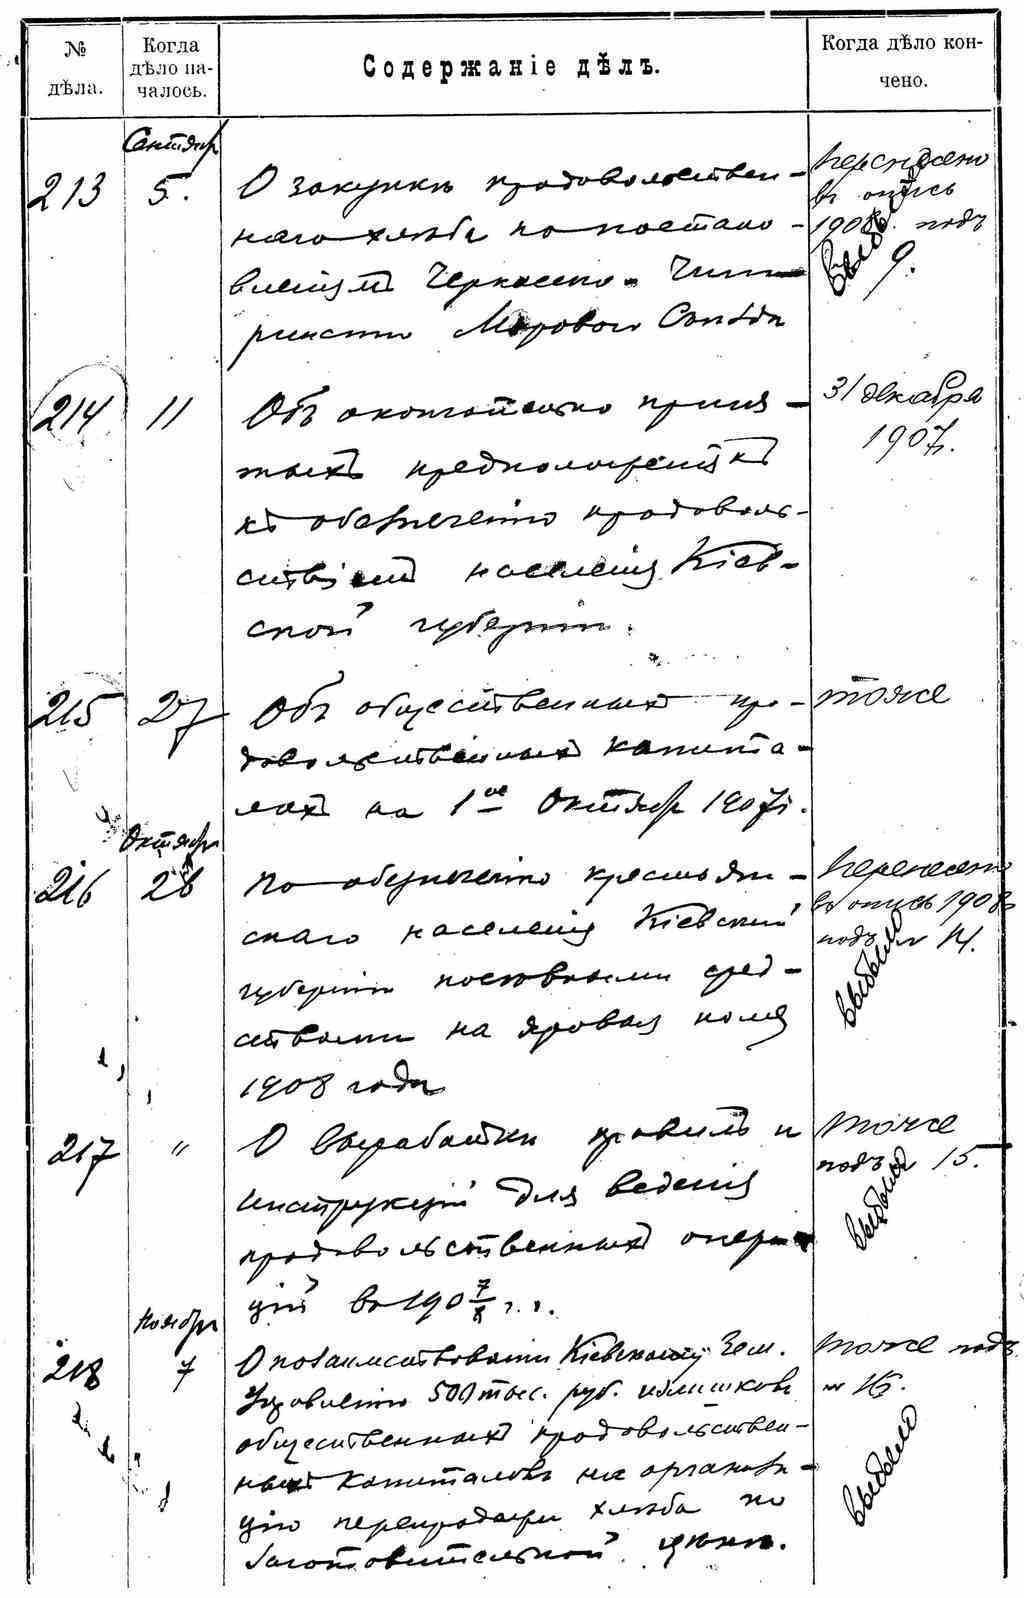 № дѣла.
Когда дѣло на-
чалось.
Содержаніе дѣлъ.
Когда дѣло кон-
чено.
Сентября
213 5. О закупкѣ продовольствен-
наго хлѣба по постано-
вленіямъ Черкасско-
Мирового Съѣзда
Перенесено
въ опись
1908 г. подъ
9.
выбыло
214 11 Объ окончательно приня-
тыхъ предположеніяхъ
къ обезпеченію продоволь-
ствіемъ населенія Кіев-
ской губерніи.
31 декабря
1907 г.
215 27 Объ общественныхъ про-
довольственныхъ капита-
лахъ на 1ое Октября 1907 г.
тоже
Октября
216 26 По обезпеченію крестьян-
скаго населенія Кіевской
губерніи посѣвными сред-
ствами на яровыя поля
1908 года
Перенесено
въ опись 1908 г.
подъ № 14.
выбыло
217 " О выработкѣ правилъ и
инструкцій для веденія
продовольственныхъ опера-
цій въ 190 7/8 г.г.
Тоже
подъ № 15.
выбыло
Ноября
218 7 О позаимствованіи Кіевскому Зем.
Управленію 500 тыс. руб. излишковъ
общественныхъ продовольствен-
ныхъ капиталовъ на организа-
цію перепродажи хлѣба по
заготовительной цѣнѣ.
Тоже подъ
№ 16.
выбыло